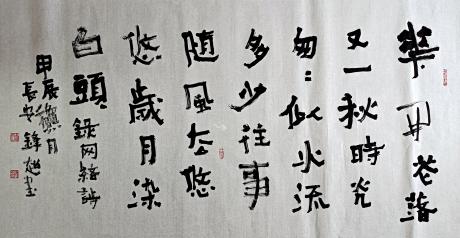 華开花落
又一秋時光
匆:似水流
多少往事
随風去悠
悠歲月染
白頭錄网絡詩
甲辰月
長安鋒書